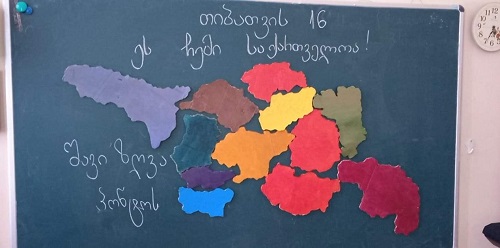 თიბათვის 16
ეს ჩემი საქართველოა!
შავი ზღვა
პონტოს